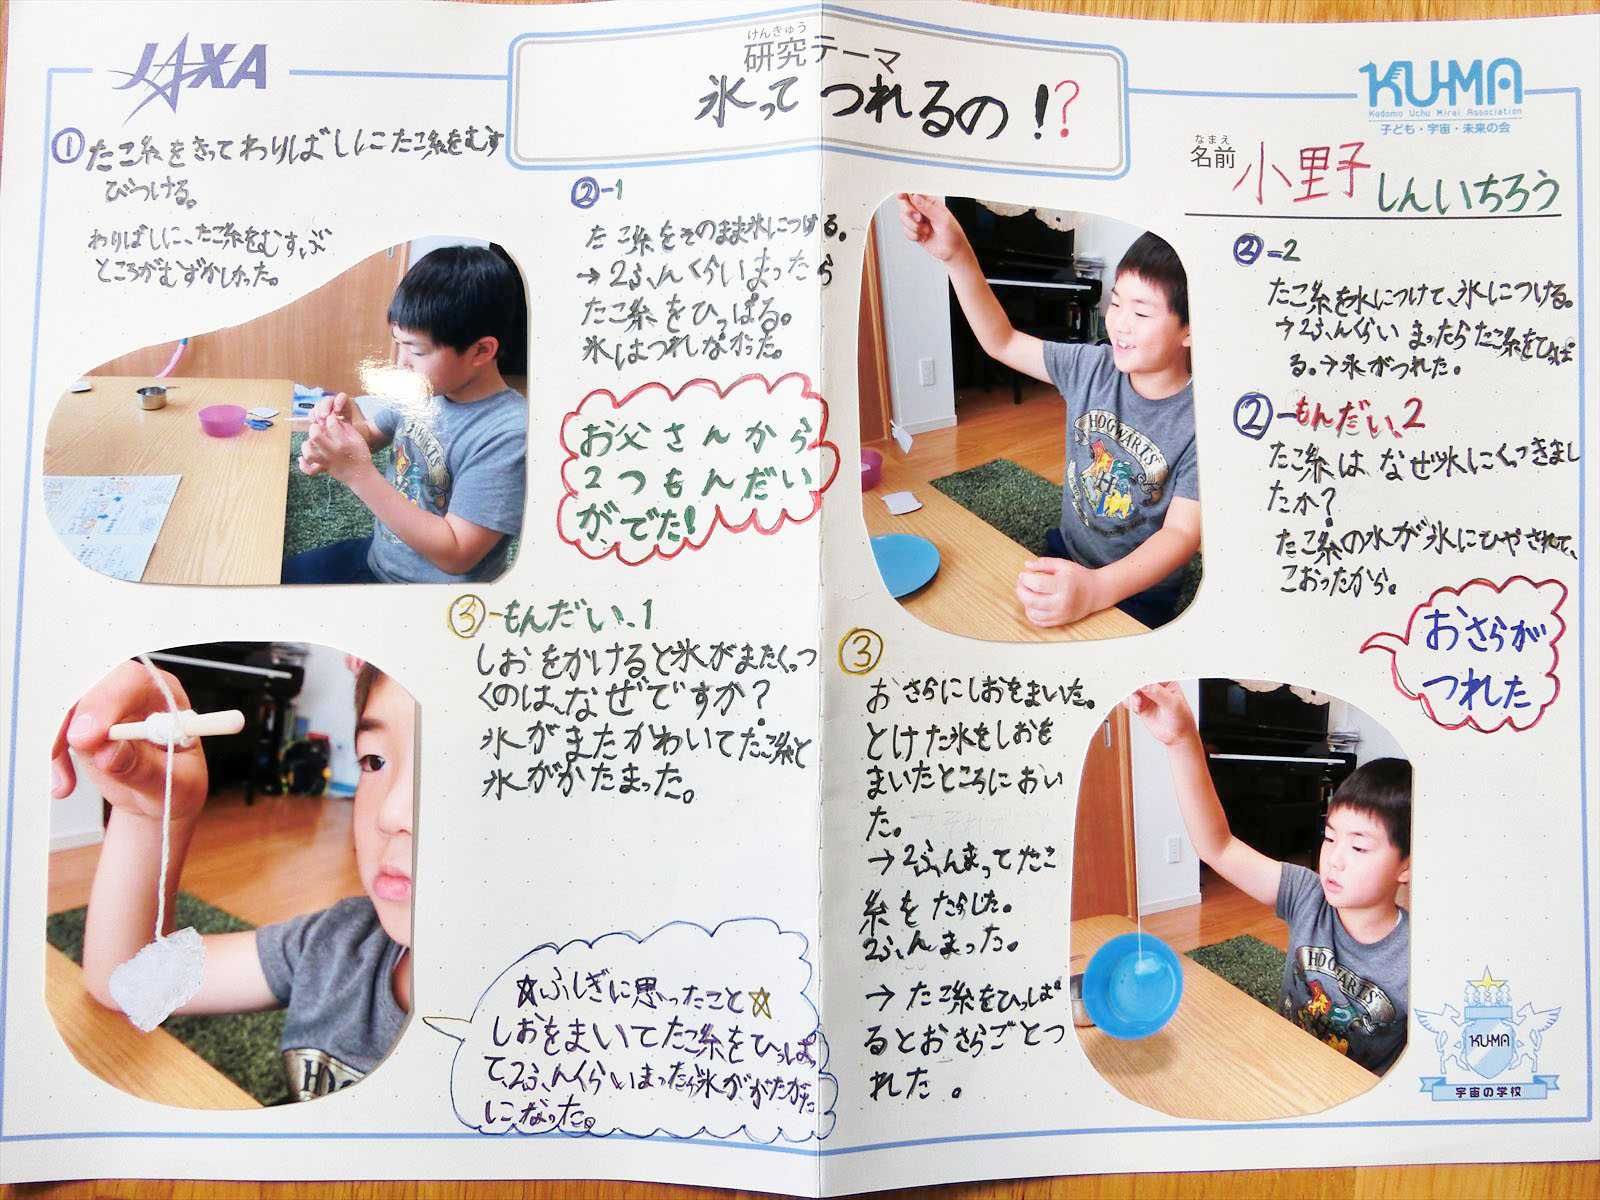 JAXA
けんきゅう
研究テーマ
氷ってつれるの!?
KUMA
Kodomo Uchu Mirai Association
子ども・宇宙・未来の会
なまえ
名前
小野子しんいちろう
①たこ糸をきってわりばしにたこ糸をむす
びつける。
わりばしに、たこ糸をむすぶ
ところがむずかしかった。
②-1
たこ糸をそのまま氷につける。
→2ふんくらいまったら
たこ糸をひっぱる。
氷はつれなかった。
お父さんから
2つもんだい
が、でた!
③-もんだい、1
しおをかけると氷がまたくっつ
くのは、なぜですか?
氷がまたかわいてたこ糸と
氷がかたまった。
☆ふしぎに思ったこと☆
しおをまいてたこ糸をひっぱっ
て、2ふんくらいまったら氷ががたがた
になった。
②-2
たこ糸を水につけて、氷につける。
→2ふんくらいまったらたこ糸をひっぱ
る。→氷がつれた。
②-もんだい、2
たこ糸は、なぜ氷にくっつきまし
たか?
たこ糸の水が氷にひやされて、
こおったから。
おさらが
つれた
③
おさらにしおをまいた。
とけた氷をしおを
まいたところにおい
た。
→2ふんまってたこ
糸をたらした。
2ふんまった。
→たこ糸をひっぱ
るとおさらごとつ
れた。
HOGWARTS
H
HOGWARTS
KUMA
宇宙の学校